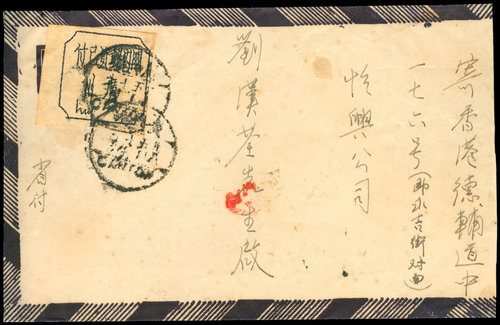 寄香港德輔道中
一七六号(即永吉街对面)
怡興公司
劉漢荃先生啟
省付